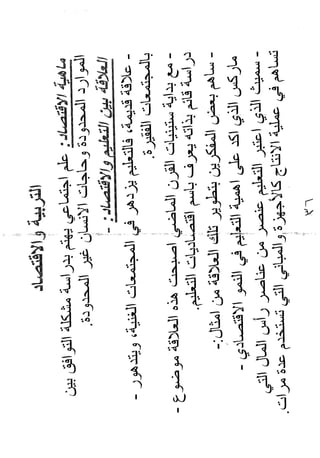 ٣٦
التربية والاقتصاد
ماهية الاقتصاد: علم اجتماعي يهتم بدراسة مشكلة التوافق بين
الموارد المحدودة وحاجات الانسان غير المحدودة.
العلاقة بين التعليم والاقتصاد: -
- علاقة قديمة، فالتعليم يزدهر في المجتمعات الغنية، ويتدهور -
بالمجتمعات الفقيرة
- مع بداية ستينيات القرن الماضي اصبحت هذه العلاقة موضوع -
دراسة قائم بذاته يعرف باسم اقتصاديات التعليم.
- ساهم بعض المفكرين بتطوير تلك العلاقة من امثال:-
ماركس الذي اكد على اهمية التعليم في النمو الاقتصادي -
- سميث الذي اعتبر التعليم عنصر من عناصر رأس المال التي
تساهم في عملية الانتاج كالأجهزة والمباني التي تستخدم عدة مرات.